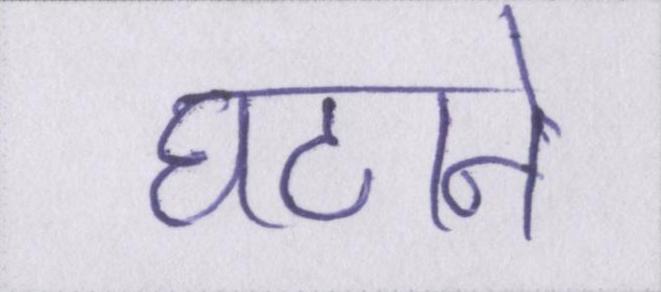 घटाने